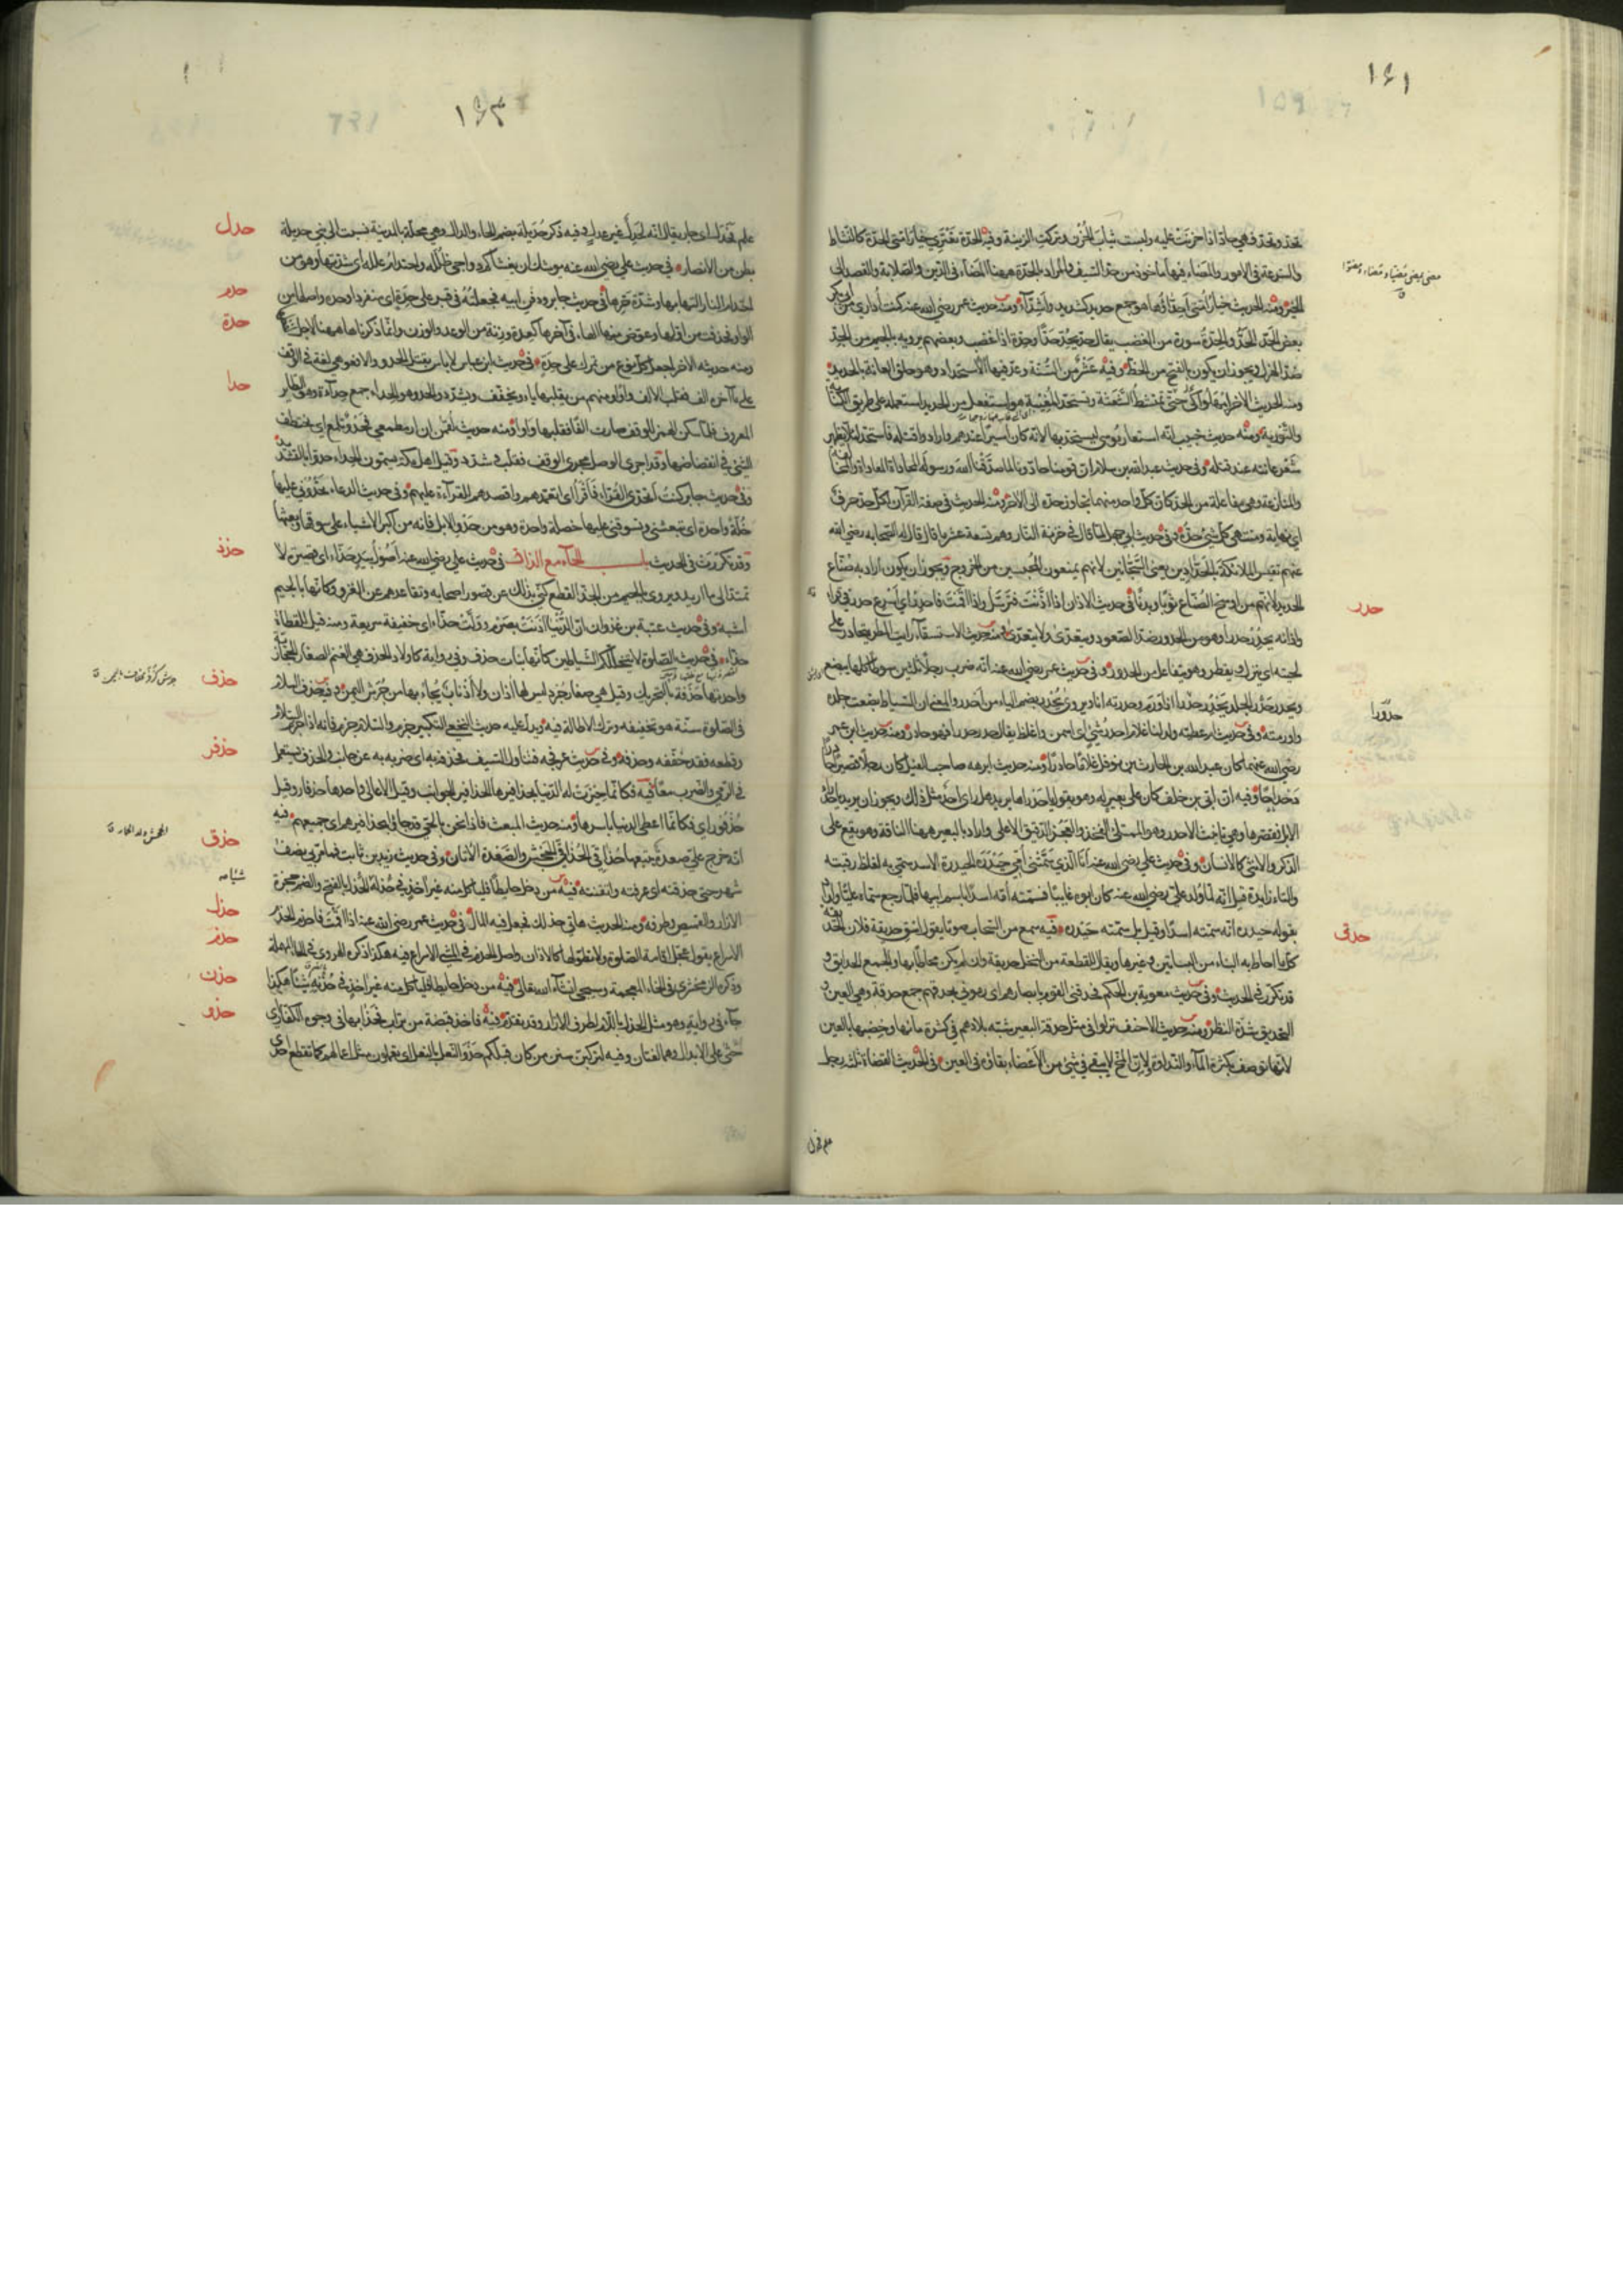 ١٦١
تحد وتحد فهي حاد اذا حزنت عليه ولبست ثياب الحزن وتركت الزينة وفيه الحدة تعتري خيار امتي الحدة كالنشاط
والسرعة في الامور والمضاء فيها ماخوذ من حد السيف والمراد بالحدة ههنا المضاء في الدين والصلابة والقصد الى
الخير ومنه الحديث خيار امتي احداؤها هو جمع حديد كشديد واشداء ومنه حديث عمر رضي الله عنه كنت اداري من ابي بكر
بعض الحد الحد والحدة سورة من الغضب يقال حد يحد حدا وحدة اذا غضب وبعضهم يرويه بالجيم من الجد
ضد الهزل ويجوز ان يكون بالفتح من الحظ وفيه عشر من السنة وعد فيها الاستحداد وهو حلق العانة بالحديد
ومنه الحديث الاخر امهلوا كي تمتشط الشعثة وتستحد المغيبة هو استفعل من الحديد استعمله على طريق الكناية
والتورية ومنه حديث خبيب انه استعار موسى ليستحد بها لانه كان اسيرا عندهم وارادوا قتله فاستحد لئلا يظهر
شعر عانته عند قتله وفي حديث عبد الله بن سلام ان قومنا حادونا لما صدقنا الله ورسوله المحادة المعاداة والمخالفة
والمنازعة وهي مفاعلة من الحد كان كل واحد منهما تجاوز حده الى الاخر ومنه الحديث في صفة القرآن لكل حرف حد
اي نهاية ومنتهى كل شيء حده وفي حديث ابي جهل لما قال في خزنة النار وهم تسعة عشر ما قال قال له الصحابة رضي الله
عنهم تقيس الملائكة بالحدادين يعني السجانين لانهم يمنعون المحبسين من الخروج ويجوز ان يكون اراد به صناع
الحديد لانهم من اوسخ الصناع ثوبا وبدنا في حديث الاذان اذا اذنت فترسل واذا اقمت فاحدر اي اسرع حدر في قراءته
واذانه يحدر حدرا وهو من الحدور ضد الصعود ويتعدى ولا يتعدى ومنه حديث الاستسقاء رايت المطر يتحادر على
لحيته اي ينزل ويقطر وهو يتفاعل من الحدور وفي حديث عمر رضي الله عنه انه ضرب رجلا ثلثين سوطا كلها يبضع
ويحدر حدر الجلد يحدر حدرا اذا ورم وحدرته انا ويروى يحدر بضم الياء من احدر والمعنى ان السياط بضعت جلده
واورمته وفي حديث ام عطية ولد لنا غلام احدر شيء اي اسمن واغلظ يقال حدر حدرا فهو حادر ومنه حديث ابن عمر
رضي الله عنهما كان عبد الله بن الحارث بن نوفل غلاما حادرا ومنه حديث ابرهه صاحب الفيل كان رجلا قصيرا حادرا
دحداحا وفيه ان ابي بن خلف كان على بعير له وهو يقول يا حدراها يريد هل راى احد مثل ذلك ويجوز ان يريد يا حدراء
الابل فقصرها وهي تانيث الاحدر وهو الممتلئ الفخذ والعجز الدقيق الاعلى واراد بالبعير ههنا الناقة وهو يقع على
الذكر والانثى كالانسان وفي حديث علي رضي الله عنه انا الذي سمتني امي حيدره الحيدرة الاسد سمي به لغلظ رقبته
والتاء زايدة قيل انه لما ولد علي رضي الله عنه كان ابوه غايبا فسمته امه اسدا باسم ابيها فلما رجع سماه عليا واراد
بقوله حيدره انه سمته اسدا وقيل بل سمته حيدره وفيه سمع من السحاب صوتا يقول اسق حديقة فلان الحديقة
كل ما احاط به البناء من البساتين وغيرها ويقال للقطعة من النخل حديقة وان لم يكن محاطا بها والجمع الحدايق و
قد تكرر في الحديث وفي حديث معوية بن الحكم فحدقني القوم بابصارهم اي رموني بحدقهم جمع حدقة وهي العين و
التحديق شدة النظر ومنه حديث الاحنف نزلوا في مثل حدقة البعير شبه بلادهم في كثرة مائها وخصبها بالعين
لانها توصف بكثرة الماء والنداوة ولان المخ لا يبقى في شيء من الاعضاء بقاؤه في العين في الحديث القضاة ثلثة رجل
حدر
حدورا
حدق
علم فحدل
١٦٢
علم فحدل اي جار يقال انه لحدل غير عدل وفيه ذكر حديلة بضم الحاء والدال وهي محلة بالمدينة نسبت الى بني حديلة
بطن من الانصار في حديث علي رضي الله عنه يوشك ان يغشاكم دواجي ظلله واحتدام علله اي شدتها وهو من
احتدام النار التهابها وشدة حرها في حديث جابر ودفن ابيه فجعلته في قبر على حدة اي منفردا وحده واصلها من
الواو فحذفت من اولها وعوض منها الهاء في آخرها كعدة وزنة من الوعد والوزن وانما ذكرناها ههنا لاجل لفظها
ومنه حديثه الاخر اجعل كل نوع من تمرك على حدة في حديث ابن عباس لا باس بقتل الحدو والافعو هي لغة في الوقف
على ما آخره الف فقلب الالف واوا ومنهم من يقلبها ياء ويخفف ويشدد والحدو هو الحداء جمع حدأة وهو الطاير
المعروف فلما سكن الهمز للوقف صارت الفا فقلبها واوا ومنه حديث لقمن ان ار مطمعي فحدو تلمع اي تختطف
الشيء في انقضاضها وقد اجرى الوصل مجرى الوقف فقلب وشدد وقيل اهل مكة يسمون الحداء حدوا بالتشديد
وفي حديث جابر كنت اتحدى القراء فاقرأ اي اتعمدهم واقصدهم للقراءة عليهم وفي حديث الدعاء تحدوني عليها
خلة واحدة اي تبعثني وتسوقني عليها خصلة واحدة وهو من حدو الابل فانه من اكبر الاشياء على سوقها وبعثها
وقد تكررت في الحديث باب الحاء مع الذال في حديث علي رضي الله عنه اصول بيد حذاء اي قصيرة لا
تمتد الى ما اريد ويروى بالجيم من الجذ القطع كنى بذلك عن قصور اصحابه وتقاعدهم عن الغزو وكانها بالجيم
اشبه وفي حديث عتبة بن غزوان ان الدنيا اذنت بصرم وولت حذاء اي خفيفة سريعة ومنه قيل للقطاة
حذاء في حديث الصلوة لا تتخللكم الشياطين كانها بنات حذف وفي رواية كاولاد الحذف هي الغنم الصغار الحجازية
واحدتها حذفة بالتحريك وقيل هي صغار جرد ليس لها اذان ولا اذناب يجاء بها من جرش اليمن وفيه حذف السلام
في الصلوة سنة هو تخفيفه وترك الاطالة فيه ويدل عليه حديث النخعي التكبير جزم والسلام جزم فانه اذا جزم السلام
وقطعه فقد خففه وحذفه وفي حديث عرفجه فتناول السيف فحذفه به اي ضربه به عن جانب والحذف يستعمل
في الرمي والضرب معا فيه فكانما حيزت له الدنيا بحذافيرها الحذافير الجوانب وقيل الاعالي واحدها حذفار وقيل
حذفور اي فكانما اعطي الدنيا باسرها ومنه حديث المبعث فاذا نحن بالحي قد جاؤا بحذافيرهم اي جميعهم فيه
انه خرج على صعدة يتبعها حذاقي الحذاقي الجحش والصعدة الاتان وفي حديث زيد بن ثابت فما مر بي نصف
شهر حتى حذقته اي عرفته واتقنته فيه من دخل حايطا فلياكل منه غير آخذ في حذله الحذل بالفتح والضم حجزة
الازار والقميص وطرفه ومنه الحديث هاتي حذلك فجعل فيه المال في حديث عمر رضي الله عنه اذا اقمت فاحذم الحذم
الاسراع يقول عجل اقامة الصلوة ولا تطولها كالاذان واصل الحذم في المشي الاسراع فيه هكذا ذكره الهروي في الحاء المهملة
وذكره الزمخشري في الخاء المعجمة وسيجيء انشاء الله تعالى فيه من دخل حايطا فلياكل منه غير آخذ في حذنه شيئا هكذا
جاء في رواية وهو مثل الحذل باللام لطرف الازار وقد تقدم فيه فاخذ قبضة من تراب فحذا بها في وجوه الكفار اي
حثى على الابدال وهما لغتان وفيه لتركبن سنن من كان قبلكم حذو النعل بالنعل اي تعملون مثل اعمالهم كما تقطع احدى
حدل
حدم
حدة
حدا
حذذ
حذف
حذفر
حذق
حذل
حذم
حذن
حذو